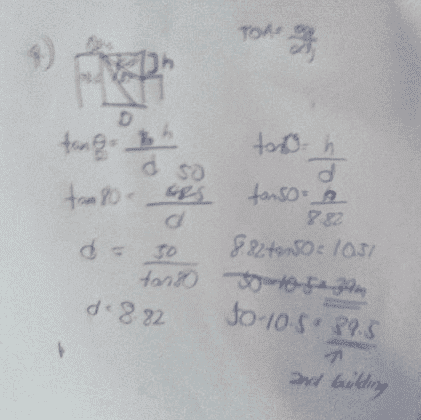 TOA = opp/adj
4)
h
D
tan θ = h/d
tan 80 = 50/d
d = 50/tan80
d = 8.82
tan θ = h/d
tan 50 = h/8.82
8.82 tan 50 = 10.51
50 - 10.5 = 39m
50 - 10.5 = 39.5
↑
2nd building